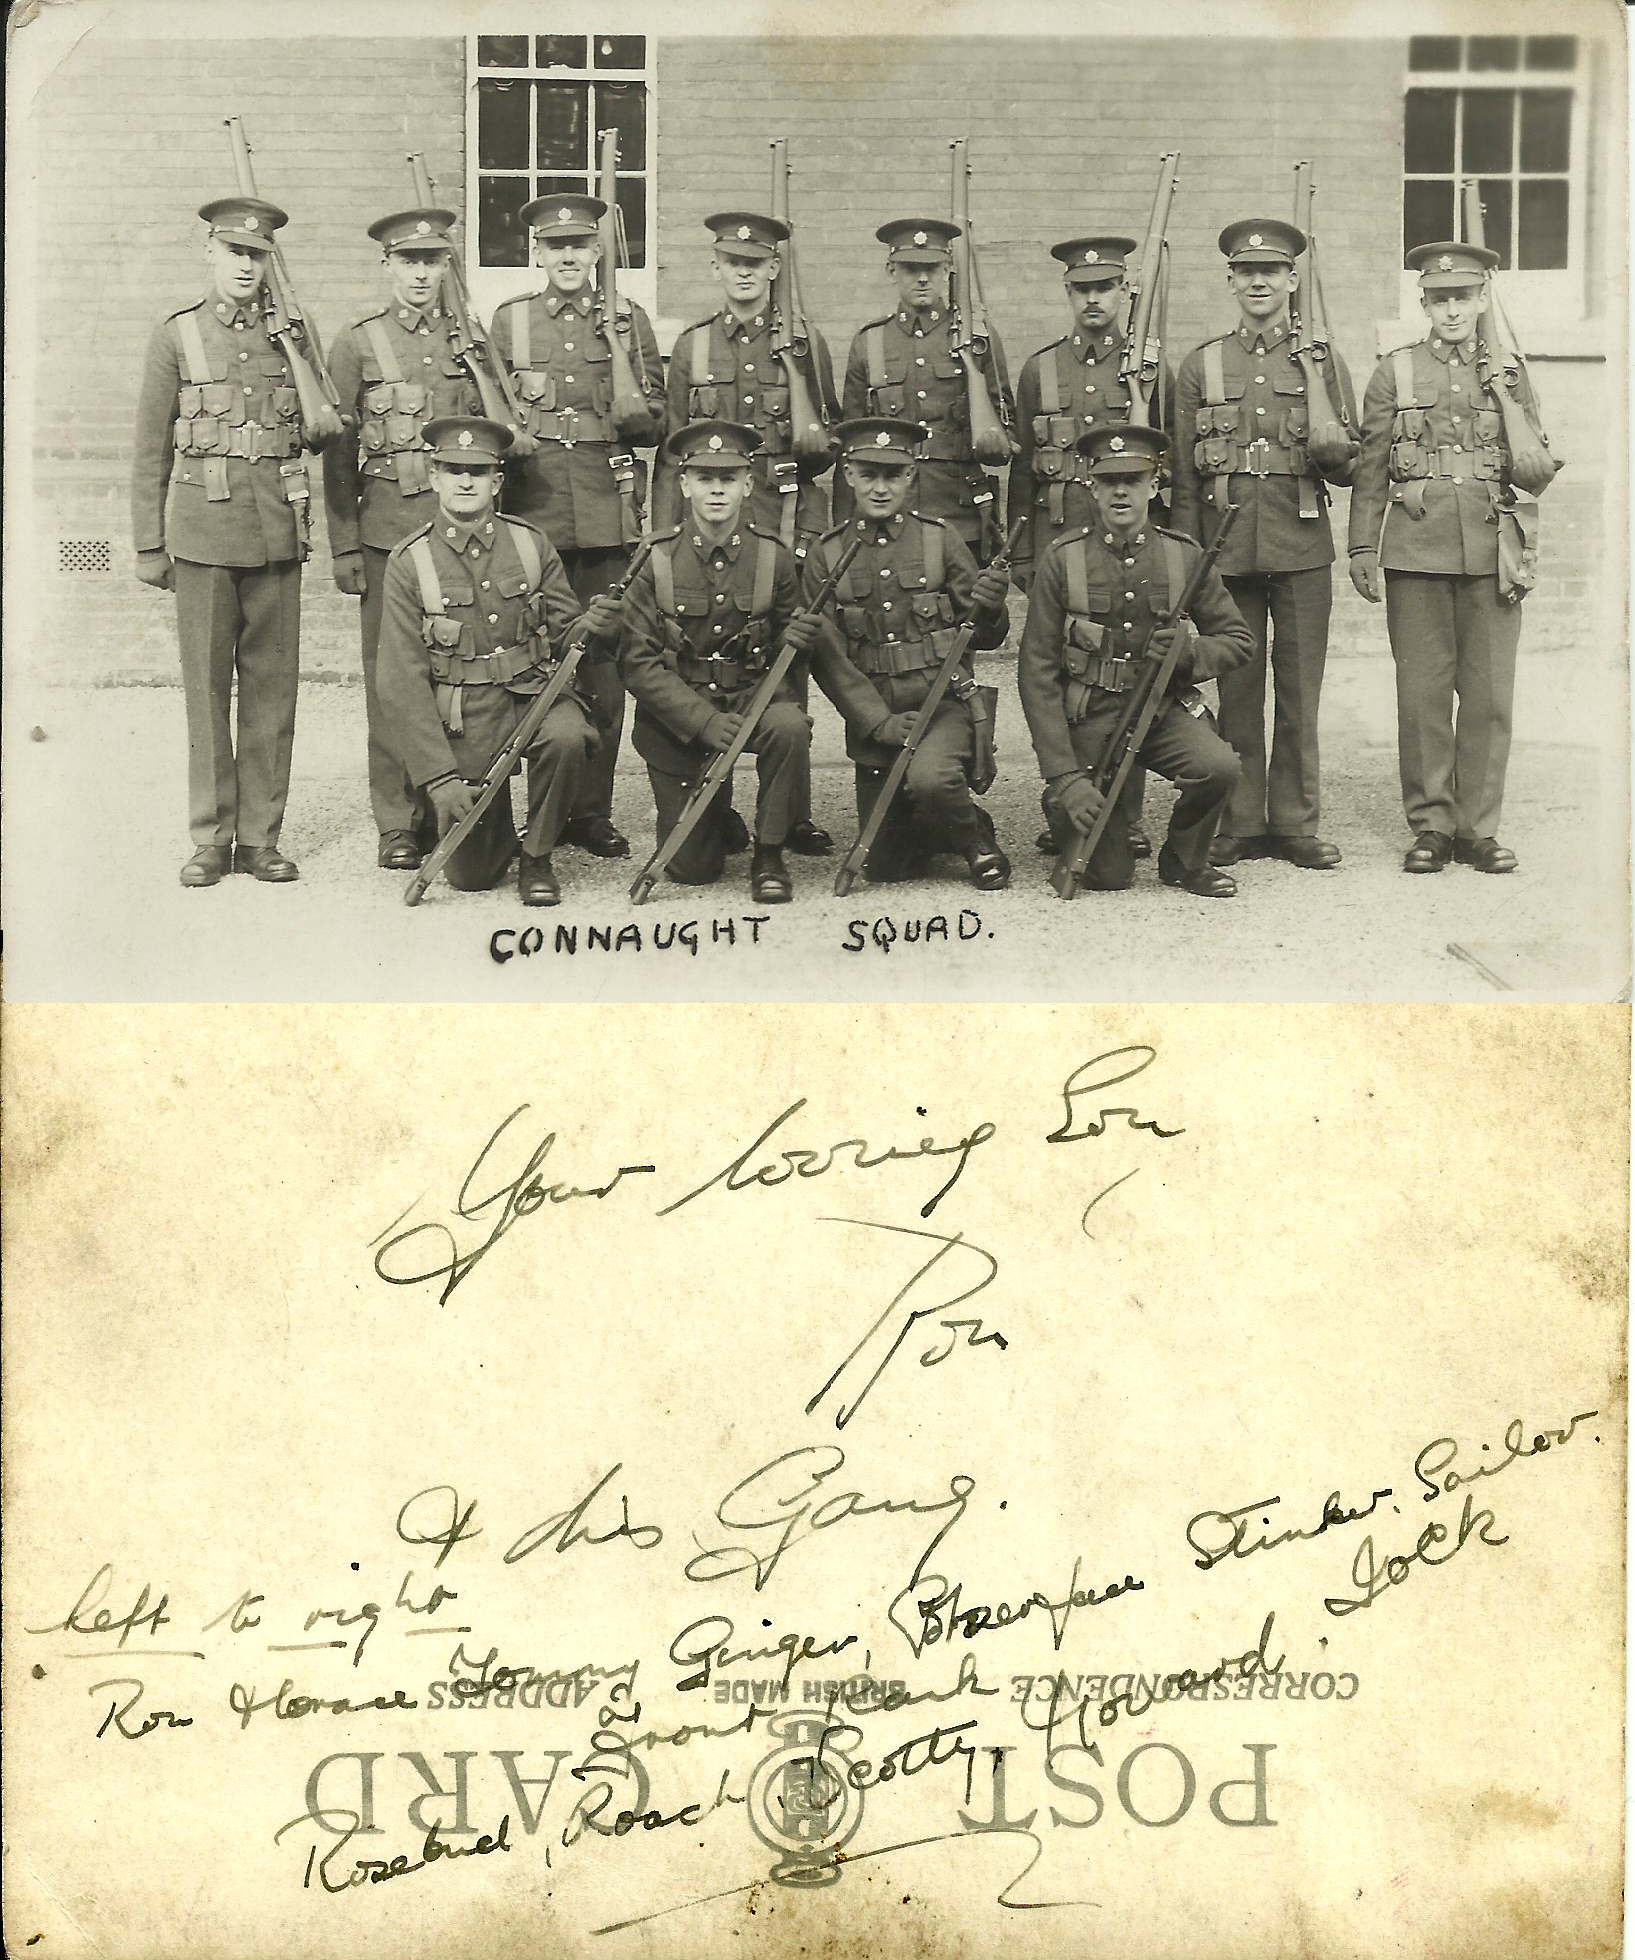 CONNAUGHT SQUAD.
Your loving Son
Ron
& his Gang.
left to right
Ron Horace Tommy Ginger, Stinker. Sailor.
Jock
Front Rank
Rosebud, Roach, Scotty, Howard.
CORRESPONDENCE BRITISH MADE ADDRESS
POST CARD